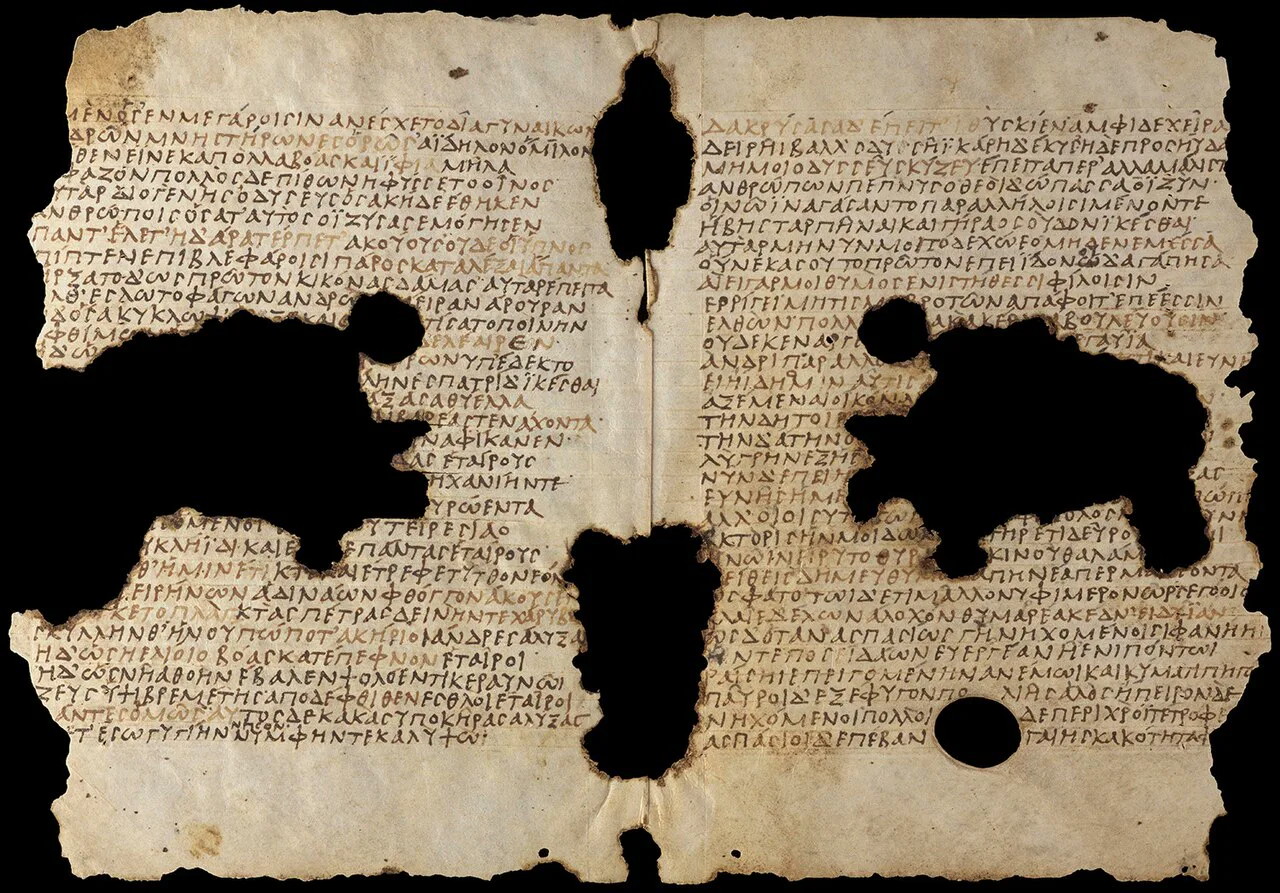 ΜΕΝΟϹΕΝΜΕΓΑΡΟΙϹΙΝΑΝΕϹΧΕΤΟΔΙΑΓΥΝΑΙΚΩΝ
ΔΡΩΝΜΝΗϹΤΗΡΩΝΕϹΟΡΩϹ'ΑΪΔΗΛΟΝΟΜΙΛΟΝ
ΘΕΝΕΙΝΕΚΑΠΟΛΛΑΒΟΑϹΚΑΙΪΦΙΑΜΗΛΑ
ΦΑΖΟΝΠΟΛΛΟϹΔΕΠΙΘΩΝΗΦΥϹϹΕΤΟΟΙΝΟϹ
ΥΤΑΡΔΙΟΓΕΝΗϹΟΔΥϹΕΥϹΟϹΑΚΗΔΕΕΘΗΚΕΝ
ΑΝΘΡΩΠΟΙϹΟϹΑΤ'ΑΥΤΟϹΟΪΖΥϹΑϹΕΜΟΓΗϹΕΝ
ΠΑΝΤ'ΕΛΕΓ'ΗΔ'ΑΡΑΤΕΡΠΕΤ'ΑΚΟΥΟΥϹΟΥΔΕΟΙΫΠΝΟϹ
ΠΙΠΤΕΝΕΠΙΒΛΕΦΑΡΟΙϹΙΠΑΡΟϹΚΑΤΑΛΕΞΑΙΑΠΑΝΤΑ
ΗΡΞΑΤΟΔΩϹΠΡΩΤΟΝΚΙΚΟΝΑϹΔΑΜΑϹ'ΑΥΤΑΡΕΠΕΙΤΑ
ΛΘ'ΕϹΛΩΤΟΦΑΓΩΝΑΝΔΡΩ ΕΙΡΑΝΑΡΟΥΡΑΝ
ΔΟϹΑΚΥΚΛΩ ΤΙϹΑΤΟΠΟΙΝΗΝ
ΦΘΙΜΩ ΕΛΕΑΙΡΕΝ
ΔΩ ΩΝΥΠΕΔΕΚΤΟ
ΛΗΝΕϹΠΑΤΡΙΔΪΚΕϹΘΑΙ
ΑΞΑϹΑΘΥΕΛΛΑ
ΒΑΡΕΑϹΤΕΝΑΧΟΝΤΑ
ΝΑΦΙΚΑΝΕΝ
ΑϹΕΤΑΙΡΟΥϹ
ΗΧΑΝΙΗΝΤΕ
ΥΡΩΕΝΤΑ
ΟΜΕΝΟ ΥΤΕΙΡΕϹΙΑΟ
ΥΚΛΗΪΔΙΚΑΙΕ ΕΠΑΝΤΑϹΕΤΑΙΡΟΥϹ
Θ'ΗΜΙΝΕΤΙΚΤ ΑΙΕΤΡΕΦΕΤΥΤΘΟΝΕΟΝ
ΕΙΡΗΝΩΝΑΔΙΝΑΩΝΦΘΟΓΓΟΝΑΚΟΥϹ
ΚΕΤΟΠΛΑΓΚΤΑϹΠΕΤΡΑϹΔΕΙΝΗΝΤΕΧΑΡΥΒ
ϹΚΥΛΛΗΝΘ'ΗΝΟΥΠΩΠΟΤ'ΑΚΗΡΙΟΙΑΝΔΡΕϹΑΛΥΞΑ
ΗΔ'ΩϹΗΕΛΙΟΙΟΒΟΑϹΚΑΤΕΠΕΦΝΟΝΕΤΑΙΡΟΙ
ΗΔ'ΩϹΝΗΑΘΟΗΝΕΒΑΛΕΝΨΟΛΟΕΝΤΙΚΕΡΑΥΝΩΙ
ΖΕΥϹΥΨΙΒΡΕΜΕΤΗϹΑΠΟΔΕΦΘΙΘΕΝΕϹΘΛΟΙΕΤΑΙΡΟΙ
ΑΝΤΕϹΟΜΩϹΑΥΤΟϹΔΕΚΑΚΑϹΥΠΟΚΗΡΑϹΑΛΥΞΑϹ
ΕϹΩΓΥΓΙΗΝΝΗϹΟΝΝΥΜΦΗΝΤΕΚΑΛΥΨΩ
ΔΑΚΡΥϹΑϹΑΔ'ΕΠΕΙΤ'ΙΘΥϹΚΙΕΝΑΜΦΙΔΕΧΕΙΡΑ
ΔΕΙΡΗΙΒΑΛΛΟΔΥϹΗΪΚΑΡΗΔΕΚΥϹΗΔΕΠΡΟϹΗΥΔΑ
ΜΗΜΟΙΟΔΥϹϹΕΥϹΚΥΖΕΥΕΠΕΙΤΑΠΕΡ'ΑΛΛΑΜΑΛΙϹΤ
ΑΝΘΡΩΠΩΝΠΕΠΝΥϹΟΘΕΟΙΔΩΠΑϹΑΝΟΪΖΥΝ
ΟΙΝΩΙΝΑΓΑϹΑΝΤΟΠΑΡΑΛΛΗΛΟΙϹΙΜΕΝΟΝΤΕ
ΗΒΗϹΤΑΡΠΗΝΑΙΚΑΙΓΗΡΑΟϹΟΥΔΟΝΪΚΕϹΘΑΙ
ΑΥΤΑΡΜΗΝΥΝΜΟΙΤΟΔΕΧΩΕΟΜΗΔΕΝΕΜΕϹϹΑ
ΟΥΝΕΚΑϹΟΥΤΟΠΡΩΤΟΝΕΠΕΙΪΔΟΝΩΔΑΓΑΠΗϹΑ
ΑΙΕΙΓΑΡΜΟΙΘΥΜΟϹΕΝΙϹΤΗΘΕϹϹΙΦΙΛΟΙϹΙΝ
ΕΡΡΙΓΕΙΜΗΤΙϹΜΕΒΡΟΤΩΝΑΠΑΦΟΙΤ'ΕΠΕΕϹϹΙΝ
ΕΛΘΩΝΠΟΛΛ ΑΚΑΚΕΡΔΕΑΒΟΥΛΕΥΟΥϹΙΝ
ΟΥΔΕΚΕΝΑΡΓ ΕΓΑΥΙΑ
ΑΝΔΡΙΠΑΡΑΛΛ ΑΙΕΥΝΗ
ΕΙΗΙΔΗΜΙΝΑΥΤΙϹ
ΑΞΕΜΕΝΑΙΟΙΚΟΝΔ
ΤΗΝΔΗΤΟΙ
ΤΗΝΔΑΤΗΝΟ
ΛΥΓΡΗΝΕΞΗϹ
ΝΥΝΔΕΠΕΙΗ ΑϹ
ΕΥΝΗϹΗΜΕ
ΑΛΛΟΙΟΙϹΥΤ ΟΛΟϹ
ΑΚΤΟΡΙϹΗΝΜΟΙΔΩ ΗΡΕΤΙΔΕΥΡΟ
ΝΩΙΝΕΙΡΥΤΟΘΥΡ ΚΙΝΟΥΘΑΛΑΜ
ΕΙΘΕΙϹΔΗΜΕΥΘΥΜ ΠΗΝΕΑΠΕΡΜ ΕΟΝΤΑ
ΩϹΦΑΤΟΤΩΙΔ'ΕΤΙΜΑΛΛΟΝΥΦΙΜΕΡΟΝΩΡϹΕΓΟΟΙΟ
ΛΑΙΕΔΕΧΩΝΑΛΟΧΟΝΘΥΜΑΡΕΑΚΕΔΝ'ΕΙΔΥΙΑΝ
ΩϹΔΟΤΑΝΑϹΠΑϹΙΩϹΓΗΝΗΧΟΜΕΝΟΙϹΙΦΑΝΗΗΙ
ΩΝΤΕΠΟϹΕΙΔΑΩΝΕΥΕΡΓΕΑΝΗΕΝΙΠΟΝΤΩΙ
ΡΑΙϹΗΙΕΠΕΙΓΟΜΕΝΗΝΑΝΕΜΩΙΚΑΙΚΥΜΑΤΙΠΗΓ
ΠΑΥΡΟΙΔ'ΕΞΕΦΥΓΟΝΠΟ ΛΙΗϹΑΛΟϹΗΠΕΙΡΟΝΔΕ
ΝΗΧΟΜΕΝΟΙΠΟΛΛΟ ΔΕΠΕΡΙΧΡΟΪΤΕΤΡΟΦΕ
ΑϹΠΑϹΙΟΙΔΕΠΕΒΑΝ ΓΑΙΗϹΚΑΚΟΤΗΤΑ